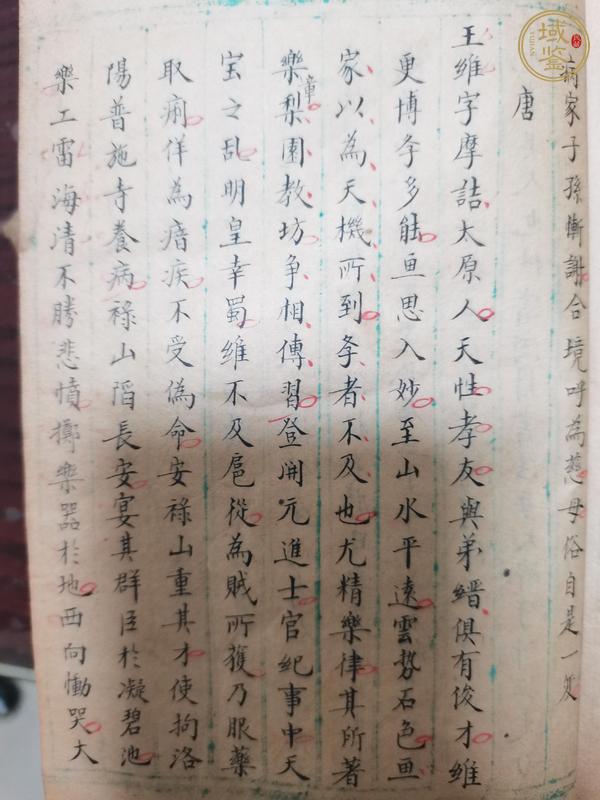 病家子孫慚謝合境呼為慈母俗自是一变
唐
王維字摩詰太原人天性孝友與弟縉俱有俊才維
更博孝多能画思入妙至山水平遠雲势石色画
家以為天機所到孝者不及也尤精樂律其所著
樂章梨園教坊争相傳習登開元進士官紀事中天
宝之乱明皇幸蜀維不及扈從為賊所獲乃服藥
取痢佯為瘖疾不受偽命安祿山重其才使拘洛
陽普施寺養病祿山陷長安宴其群臣於凝碧池
樂工雷海清不勝悲憤擲樂器於地西向慟哭大
域鑒
YUJIAN